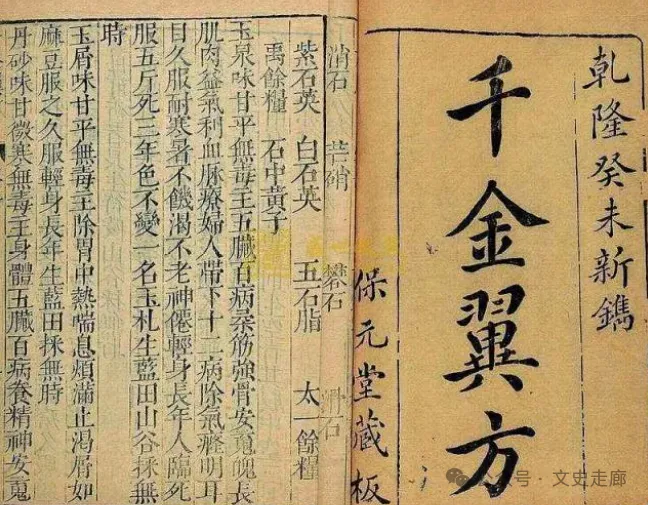 乾隆癸未新鐫
千金翼方
保元堂藏板
消石 芒硝 礬石 滑石
紫石英 白石英 五石脂 太一餘糧
禹餘糧 石中黃子
玉泉味甘平無毒主五臟百病柔筋強骨安䰟魄長
肌肉益氣利血脉療婦人帶下十二病除氣癃明耳
目久服耐寒暑不饑渴不老神僊輕身長年人臨死
服五斤死三年色不變一名玉札生藍田山谷採無
時
玉屑味甘平無毒主除胃中熱喘息煩滿止渴屑如
麻豆服之久服輕身長年生藍田採無時
丹砂味甘微寒無毒主身體五臟百病養精神安䰟
公众号 · 文史走廊